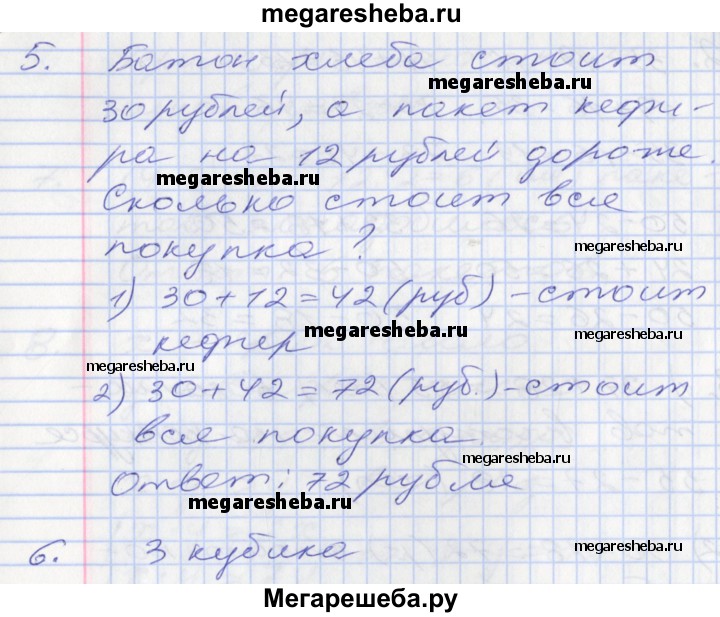 megaresheba.ru
5. Батон хлеба стоит
megaresheba.ru
30 рублей, а пакет кефи-
ра на 12 рублей дороже.
megaresheba.ru
Сколько стоит вся
покупка?
megaresheba.ru
1) 30+12=42 (руб) - стоит
megaresheba.ru
megaresheba.ru
кефир
megaresheba.ru
2) 30+42=72 (руб.) - стоит
вся покупка.
megaresheba.ru
Ответ: 72 рубля
megaresheba.ru
6. 3 кубика
megaresheba.ru
Мегарешеба.ру